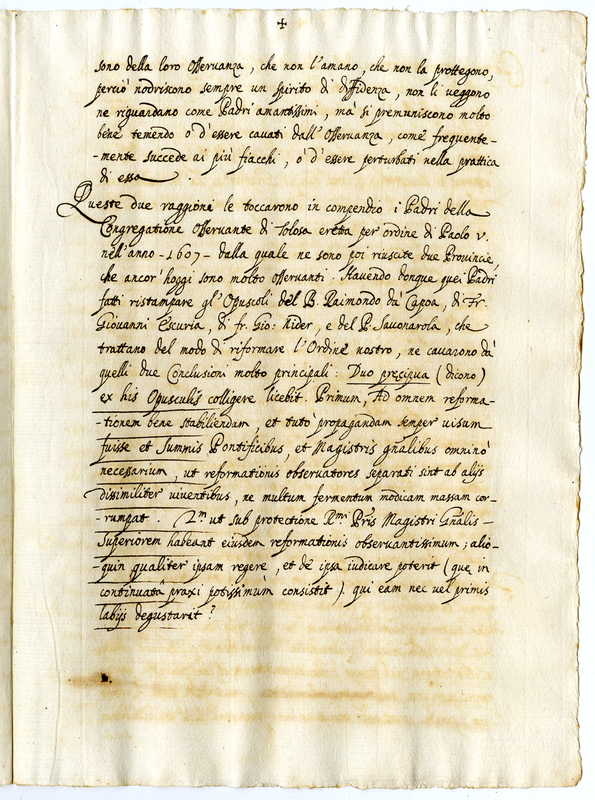 sono della loro Osseruanza, che non l'amano, che non la prottegono,
perciò nodriscono sempre un spirito di diffidenza, non li ueggono
ne riguardano come Padri amantissimi, mà si premuniscono molto
bene temendo o d'essere cauati dall'Osseruanza, come frequente-
-mente succede ai più fiacchi, o d'essere perturbati nella prattica
di essa.
Queste due raggioni le toccarono in compendio i Padri della
Congregatione Osseruante di Tolosa eretta per ordine di Paolo V.
nell'anno -1607- dalla quale ne sono poi riuscite due Prouincie,
che ancor'hoggi sono molto osseruanti. Hauendo donque quei Padri
fatti ristampare gl'Opuscoli del B. Raimondo da Capoa, di Fr.
Giouanni Escuria, di fr. Gio: Nider, e del P. Sauonarola, che
trattano del modo di riformare l'Ordine nostro, ne cauarono da
quelli due Conclusioni molto principali: Duo precipua (dicono)
ex his Opusculis colligere licebit. Primum, Ad omnem reforma-
-tionem bene stabiliendam, et tutò propagandam semper uisum
fuisse et Summis Pontificibus, et Magistris gnãlibus omninò
necessarium, ut reformationis obseruatores separati sint ab alijs
dissimiliter uiuentibus, ne multum fermentum modicam massam cor-
-rumpat. 2.m ut sub protectione R.mi P.ris Magistri Gnãlis -
Superiorem habeant eiusdem reformationis obseruantissimum; alio-
-quin qualiter ipsam regere, et de ipsa iudicare poterit (que in
continuatâ praxi potissimùm consistit). qui eam nec uel primis
labijs degustarit?